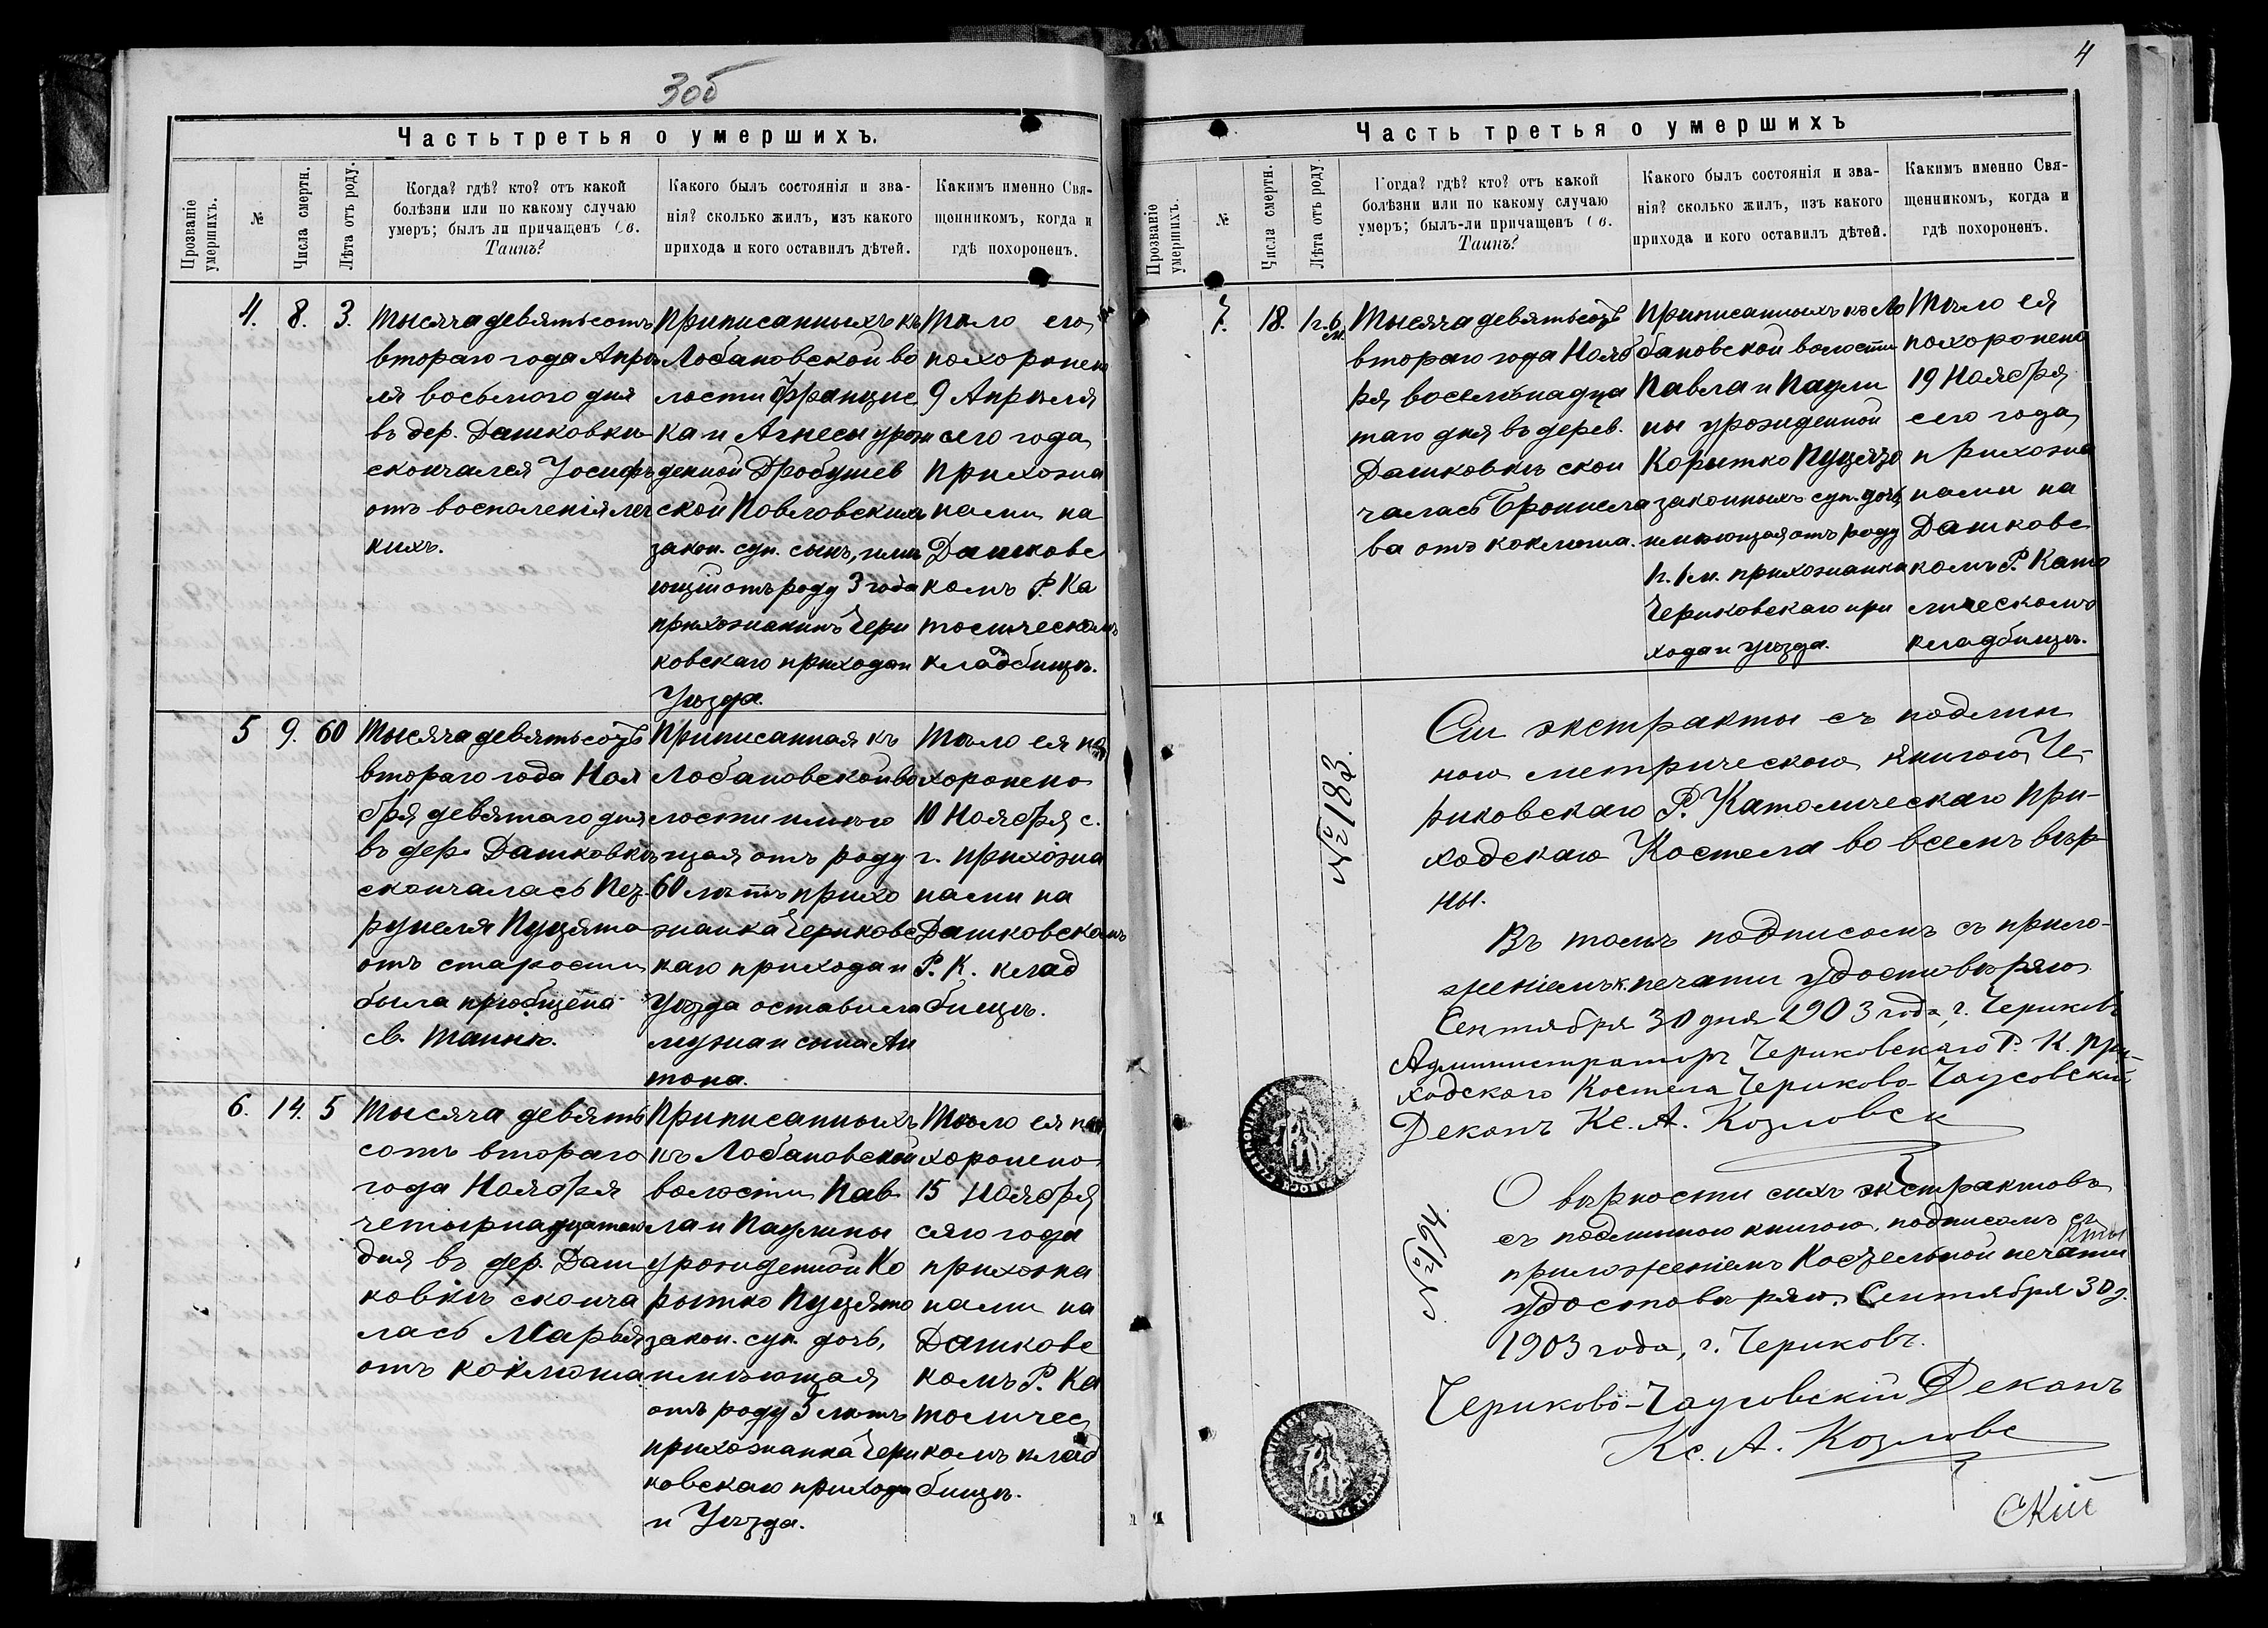 3об
Часть третья о умершихъ.
Прозваніе умершихъ.
№
Числа смерти.
Лѣта отъ роду.
Когда? гдѣ? кто? отъ какой
болѣзни или по какому случаю
умеръ; былъ ли причащенъ Св.
Таинъ?
Какого былъ состоянія и зва-
нія? сколько жилъ, изъ какого
прихода и кого оставилъ дѣтей.
Какимъ именно Свя-
щенникомъ, когда и
гдѣ похороненъ.
4. 8. 3.
Тысяча девятьсотъ
втораго года Апрѣ
ля восьмого дня
въ дер. Дашковкѣ
скончался Іосифъ
отъ воспаленія лег
кихъ.
Приписанныхъ къ
Лобановской во
лости Францис
ка и Агнесы урож
денной Дробушев
ской Повловскихъ
закон. суп. сынъ, имѣ
ющій отъ роду 3 года
прихожанинъ Чери
ковскаго прихода и
Уѣзда.
Тѣло его
похоронено
9 Апрѣля
сего года
прихожа
нами на
Дашковс
комъ Р. Ка
толическомъ
кладбищѣ.
5 9. 60
Тысяча девятьсотъ
втораго года Ноя
бря девятаго дня
въ дер. Дашковкѣ
скончалась Пет
рунеля Пуцято
отъ старости
была пріобщена
св. Таинъ.
Приписанная къ
Лобановской во
лости имѣю
щая отъ роду
60 лѣтъ прихо
жанка Чериковс
каго прихода и
Уѣзда оставила
мужа и сына Ан
тона.
Тѣло ея по
хоронено
10 Ноября с.
г. прихожа
нами на
Дашковскомъ
Р. К. клад
бищѣ.
6. 14. 5
Тысяча девять
сотъ втораго
года Ноября
четырнадцатаго
дня въ дер. Даш
ковкѣ сконча
лась Марья
отъ коклюша
Приписанныхъ
къ Лобановской
волости Пав
ла и Паулины
урожденной Ко
рытко Пуцято
закон. суп. дочь,
имѣющая
отъ роду 5 лѣтъ
прихожанка Чери
ковскаго прихода
и Уѣзда.
Тѣло ея по
хоронено
15 Ноября
сего года
прихожа
нами на
Дашковс
комъ Р. Ка
толичес
комъ клад
бищѣ.
4
Часть третья о умершихъ
Прозваніе умершихъ.
№
Числа смерти.
Лѣта отъ роду.
Когда? гдѣ? кто? отъ какой
болѣзни или по какому случаю
умеръ; былъ-ли причащенъ Св.
Таинъ?
Какого былъ состоянія и зва-
нія? сколько жилъ, изъ какого
прихода и кого оставилъ дѣтей.
Какимъ именно Свя-
щенникомъ, когда и
гдѣ похороненъ.
7. 18. 1г. 6 м.
Тысяча девятьсотъ
втораго года Нояб
ря восемьнадца
таго дня въ дерев.
Дашковкѣ скон
чалась Бронисла
ва отъ коклюша.
Приписанныхъ къ Ло
бановской волости
Павла и Паули
ны урожденной
Корытко Пуцято
законныхъ суп. дочь,
имѣющая отъ роду
1г. 6м. прихожанка
Чериковскаго при
хода и уѣзда.
Тѣло ея
похоронено
19 Ноября
сего года
прихожа
нами на
Дашковс
комъ Р. Като
лическомъ
кладбищѣ.
№ 183.
Сіи экстракты съ подлин
ною метрическою книгою Че-
риковскаго Р. Католическаго При-
ходскаго Костела во всемъ вѣр
ны.
Въ томъ подписомъ съ прило-
женіемъ к. печати удостовѣряю
Сентября 30 дня 1903 года, г. Чериковъ
Администраторъ Чериковскаго Р. К. При-
ходского Костела Чериково-Чаусовскій
Деканъ Кс. А. Козловск
№ 194.
О вѣрности сихъ экстрактовъ
съ подлинною книгою, подписомъ съ
приложеніемъ Костельной печати
удостовѣряю. Сентября 30 д.
1903 года, г. Чериковъ.
Чериково-Чаусовскій Деканъ
Кс. А. Козловс
скій